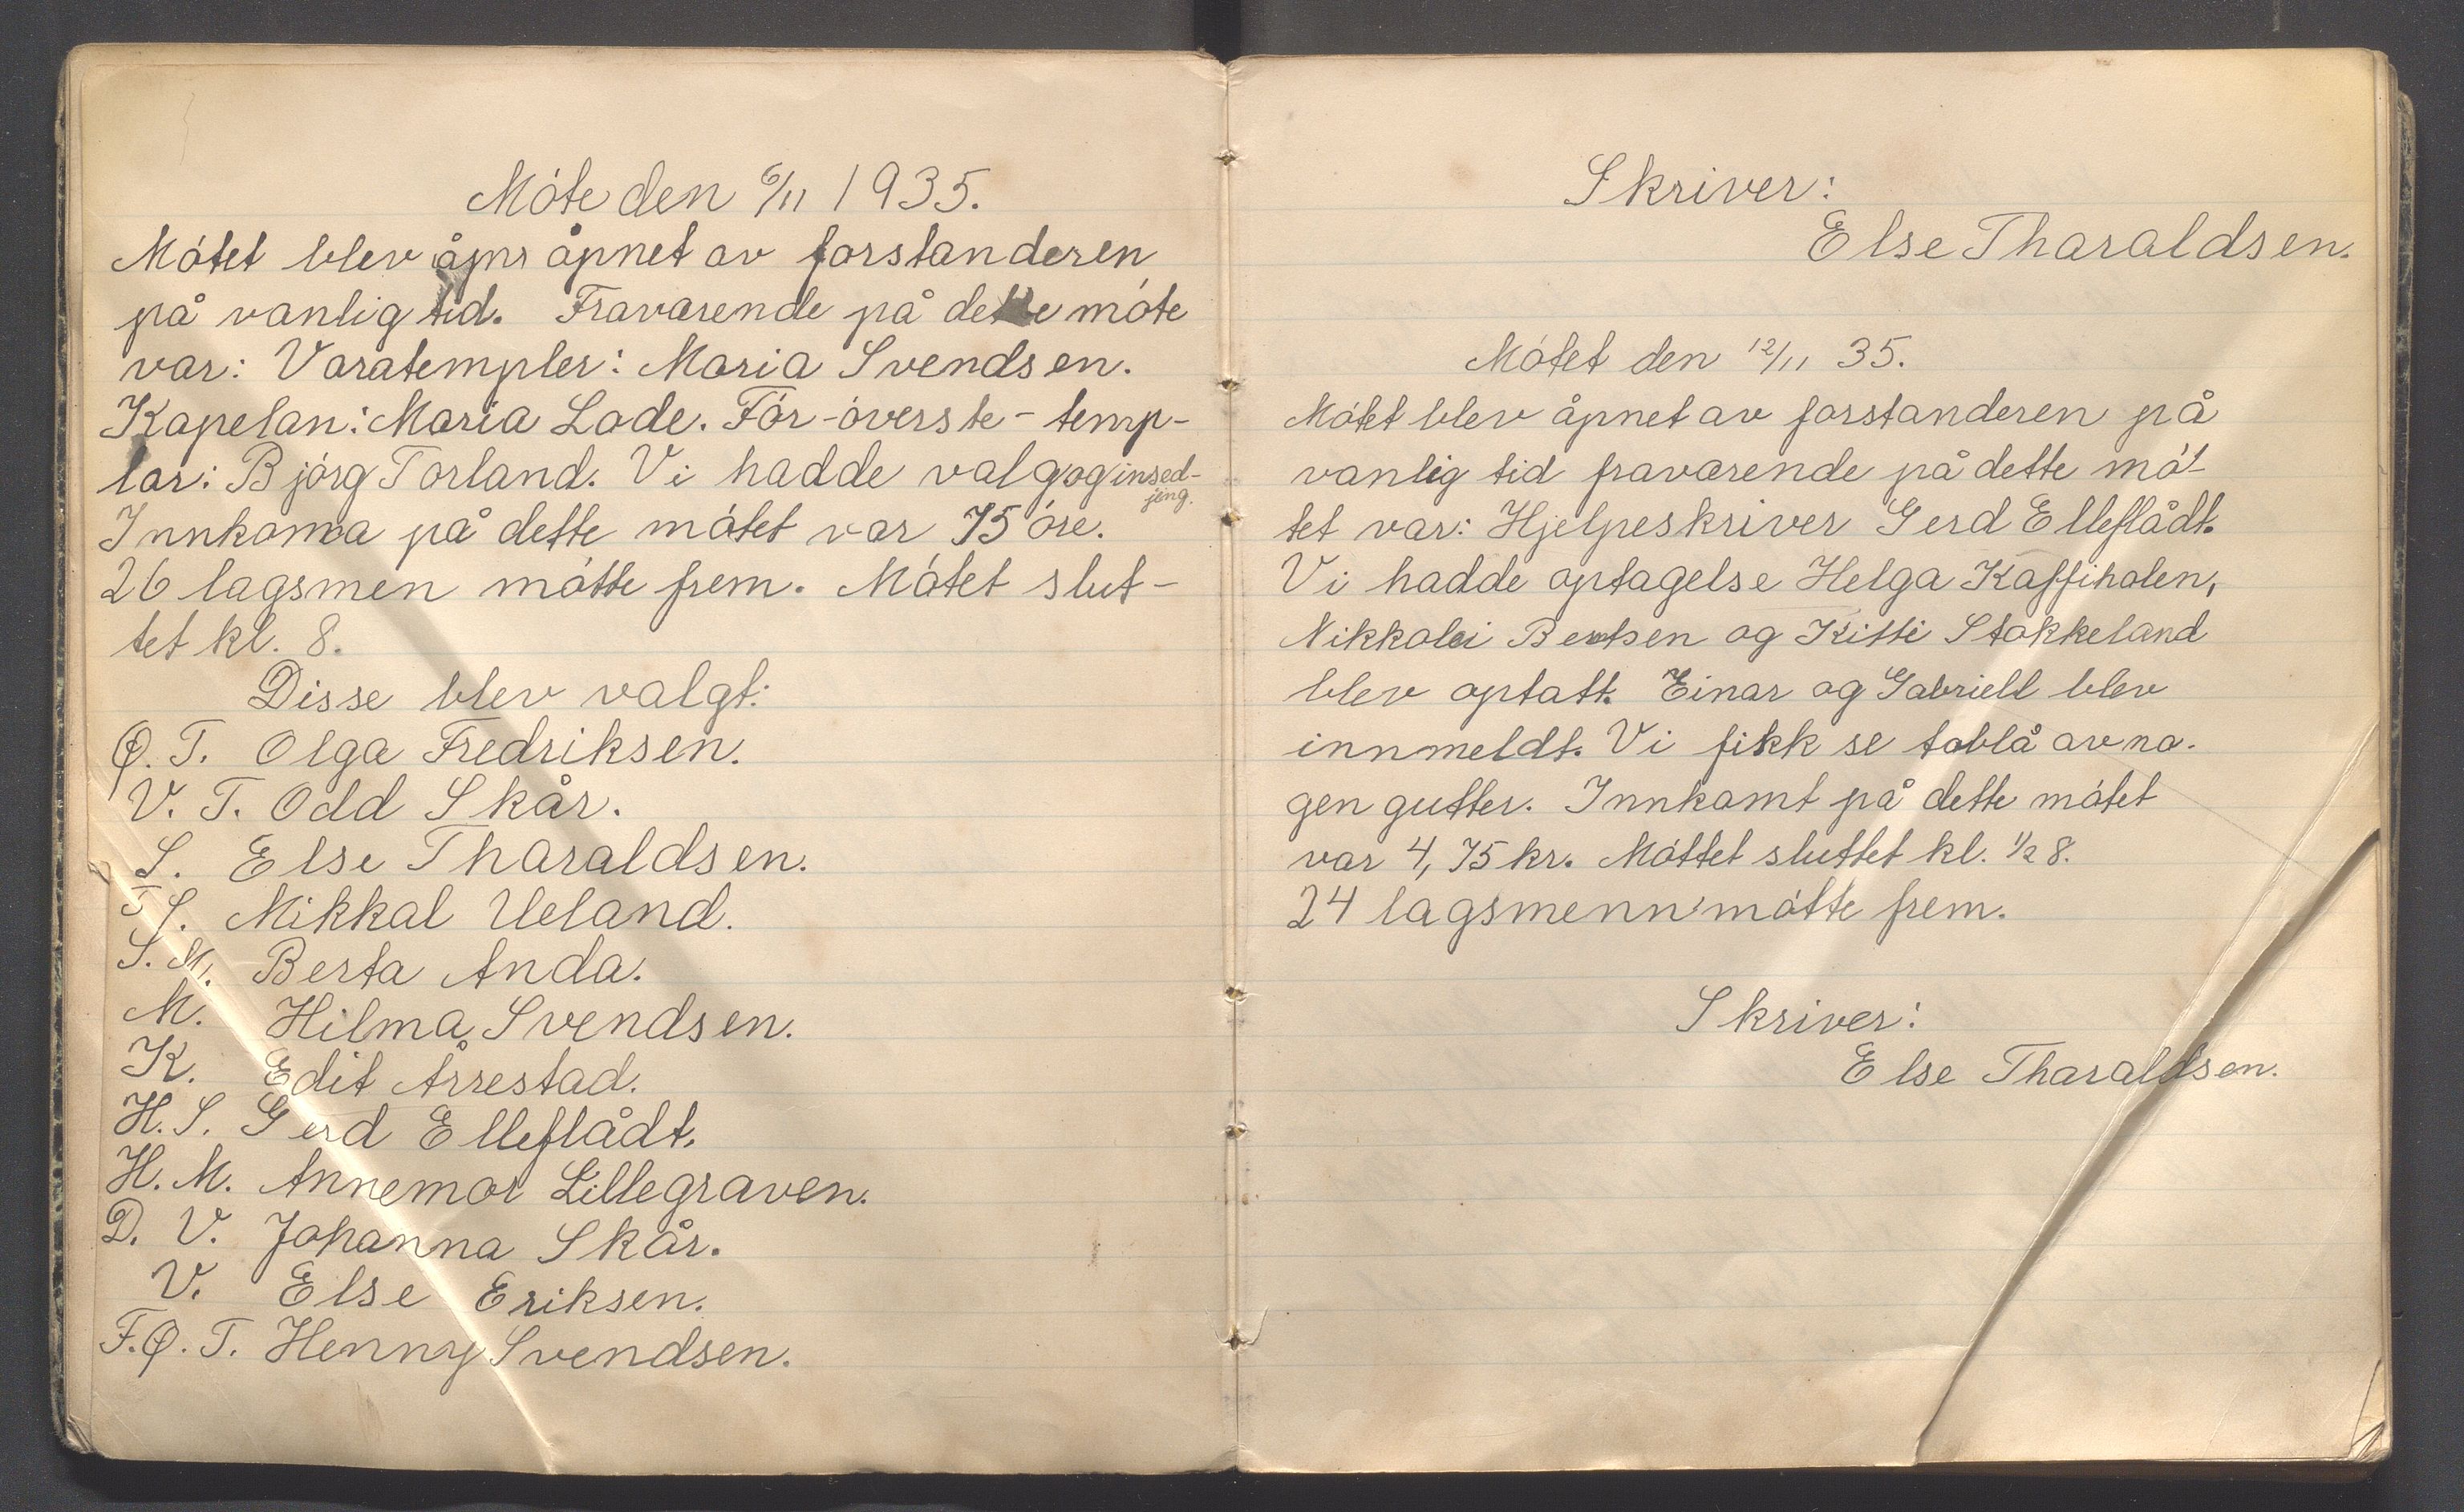 Móte den 6/11 1935.
Mótet blev åpnr åpnet av forstanderen
på vanlig tid. Fraværende på dette móte
var: Varatempler: Maria Svendsen.
Kapelan: Maria Lode. Fór-óverste-temp-
lar: Bjórg Torland. Vi hadde valg og insed-
jeng.
Innkoma på dette mótet var 75 óre.
26 lagsmen mótte frem. Mótet slut-
tet kl. 8.
Disse blev valgt:
Ø. T. Olga Fredriksen.
V. T. Odd Skår.
S. Else Tharaldsen.
F S. Mikkal Ueland.
S. M. Berta Anda.
M. Hilma Svendsen.
K. Edit Årrestad.
H. S. Gerd Elleflådt.
H. M. Annemor Lillegraven.
D. V. Johanna Skår.
V. Else Eriksen.
F.Ø.T. Henny Svendsen.
Skriver:
Else Tharaldsen.
Mótet den 12/11 35.
Mótet blev åpnet av forstanderen på
vanlig tid fraværende på dette mó-
tet var: Hjelpeskriver Gerd Elleflådt.
Vi hadde optagelse Helga Kaffiholen,
Nikkolei Bertsen og Kitti Stokkeland
blev optatt. Einar og Gabriell blev
innmeldt. Vi fikk se tablå av no-
gen gutter. Innkomt på dette mótet
var 4,75 kr. Móttet sluttet kl. 1/2 8.
24 lagsmenn mótte frem.
Skriver:
Else Tharaldsen.